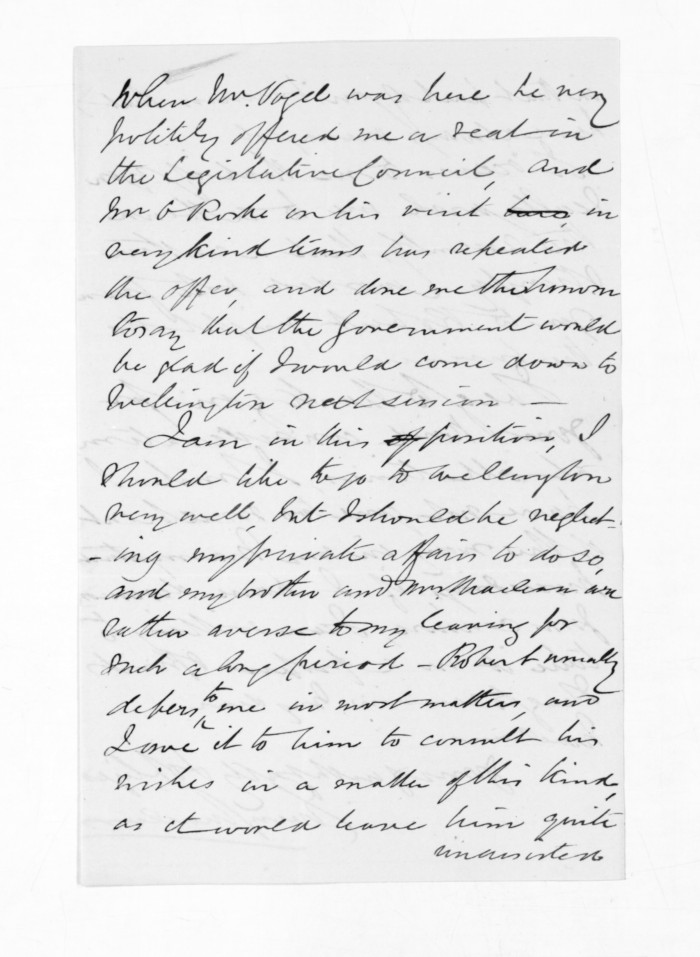 When Mr. Vogel was here he very
politely offered me a seat in
the Legislative Council, and
Mr O Rorke on his visit here, in
very kind terms has repeated
the offer, and done me the honour
to say that the Government would
be glad if I would come down to
Wellington next session —
I am in this of position, I
should like to go to Wellington
very well, but I should be neglect-
-ing my private affairs to do so,
and my brother and Mrs Maclean are
rather averse to my leaving for
such a long period - Robert usually
defers to me in most matters, and
I owe it to him to consult his
wishes in a matter of this kind,
as it would leave him quite
unassisted